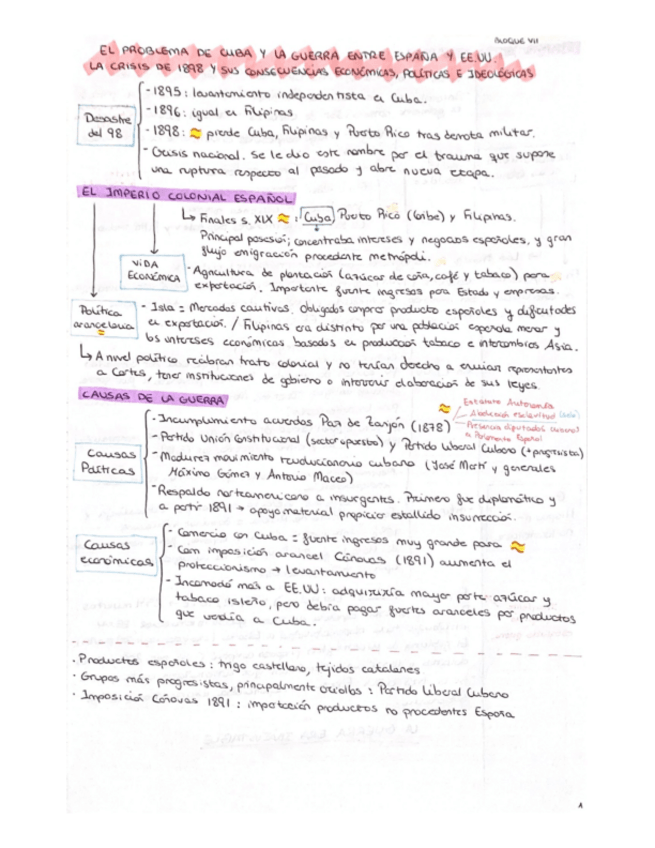 BLOQUE VII
EL PROBLEMA DE CUBA Y LA GUERRA ENTRE ESPAÑA Y EE.UU.
LA CRISIS DE 1898 Y SUS CONSECUENCIAS ECONÓMICAS, POLÍTICAS E IDEOLÓGICAS
Desastre del 98
- 1895: levantamiento independentista en Cuba.
- 1896: igual en Filipinas
- 1898: pierde Cuba, Filipinas y Puerto Rico tras derrota militar.
- Crisis nacional. Se le dio este nombre por el trauma que supone
una ruptura respecto al pasado y abre nueva etapa.
EL IMPERIO COLONIAL ESPAÑOL
↳ Finales s. XIX : Cuba, Puerto Rico (Caribe) y Filipinas.
Principal posesión; concentraba intereses y negocios españoles, y gran
flujo emigración procedente metrópoli.
VIDA ECONÓMICA
- Agricultura de plantación (azúcar de caña, café y tabaco) para
exportación. Importante fuente ingresos para Estado y empresas.
Política arancelaria
- Isla = Mercados cautivos. Obligados comprar producto españoles y dificultades
en exportación. / Filipinas era distinto por una población española menor y
los intereses económicos basados en producción tabaco e intercambios Asia.
↳ A nivel político recibían trato colonial y no tenían derecho a enviar representantes
a Cortes, tener instituciones de gobierno o intervenir elaboración de sus leyes.
CAUSAS DE LA GUERRA
Causas Políticas
- Incumplimiento acuerdos Paz de Zanjón (1878)
Estatuto Autonomía
Abolición esclavitud
Presencia diputados cubanos
a Parlamento Español
- Partido Unión Constitucional (sector opuesto) y Partido Liberal Cubano (+progresista)
- Madurez movimiento revolucionario cubano (José Martí y generales
Máximo Gómez y Antonio Maceo)
- Respaldo norteamericano a insurgentes. Primero fue diplomático y
a partir 1891 → apoyo material propicio estallido insurrección.
Causas económicas
- Comercio con Cuba = fuente ingresos muy grande para
- Con imposición arancel Cánovas (1891) aumenta el
proteccionismo → levantamiento
- Incomodó más a EE.UU: adquiriría mayor parte azúcar y
tabaco isleño, pero debía pagar fuertes aranceles por productos
que vendía a Cuba.
· Productos españoles: trigo castellano, tejidos catalanes
· Grupos más progresistas, principalmente criollos: Partido Liberal Cubano
· Imposición Cánovas 1891: importación productos no procedentes España